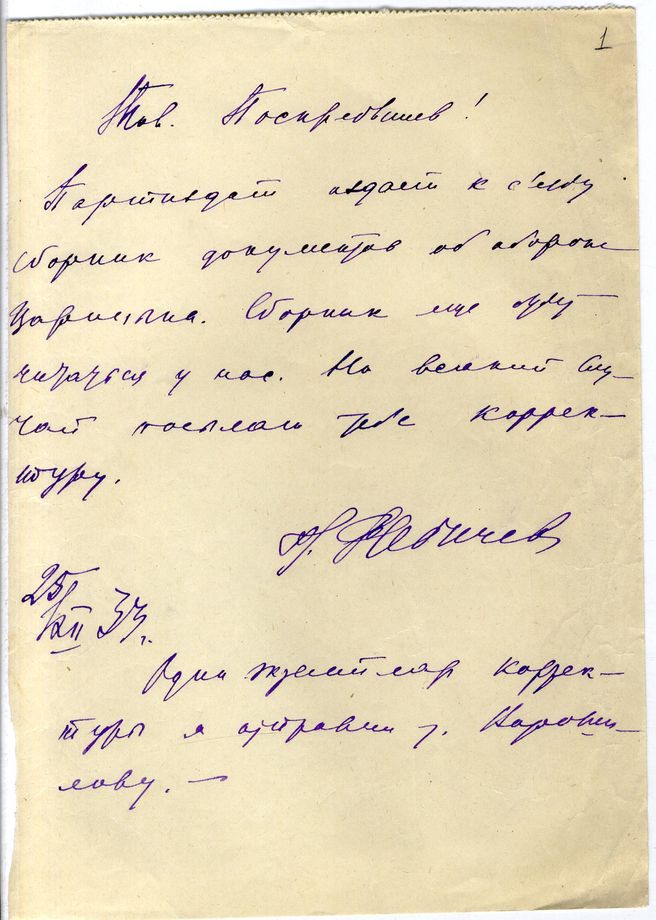 1
Тов. Поскребышев!
Партиздат издает к съезду
сборник документов об обороне
Царицына. Сборник еще будет
читаться у нас. На всякий слу-
чай посылаю тебе коррек-
туру.
25/XII 33 г.
Один экземпляр коррек-
туры я отправил т. Вороши-
лову. —